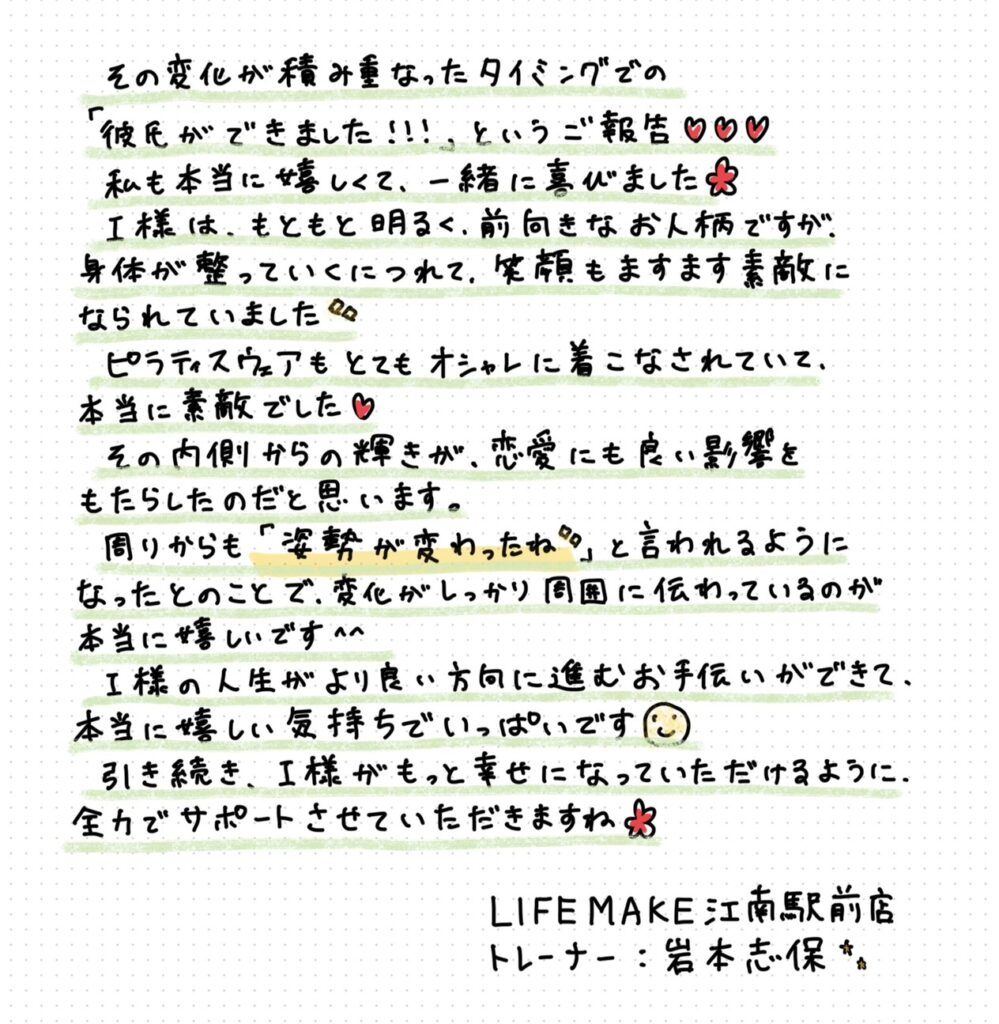 その変化が積み重なったタイミングでの
「彼氏ができました!!!」というご報告♥♥♥
私も本当に嬉しくて、一緒に喜びました
I様は、もともと明るく、前向きなお人柄ですが、
身体が整っていくにつれて、笑顔もますます素敵に
なられていました
ピラティスウェアもとてもオシャレに着こなされていて、
本当に素敵でした♥
その内側からの輝きが、恋愛にも良い影響を
もたらしたのだと思います。
周りからも「姿勢が変わったね」と言われるように
なったとのことで、変化がしっかり周囲に伝わっているのが
本当に嬉しいです^^
I様の人生がより良い方向に進むお手伝いができて、
本当に嬉しい気持ちでいっぱいです
引き続き、I様がもっと幸せになっていただけるように、
全力でサポートさせていただきますね
LIFE MAKE江南駅前店
トレーナー:岩本志保